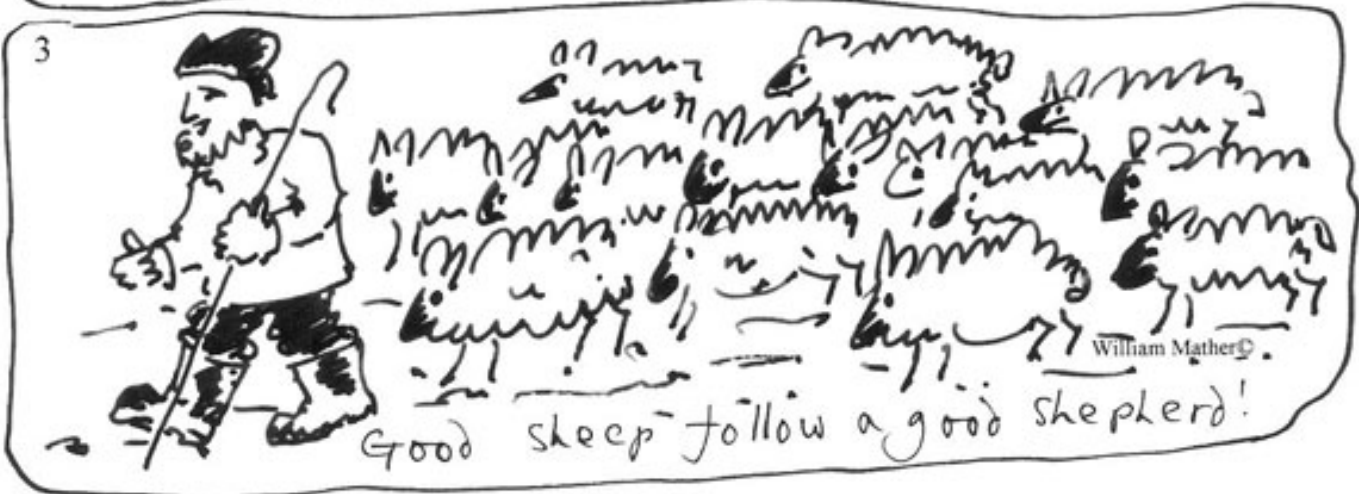 3
William Mather©
Good sheep follow a good shepherd!